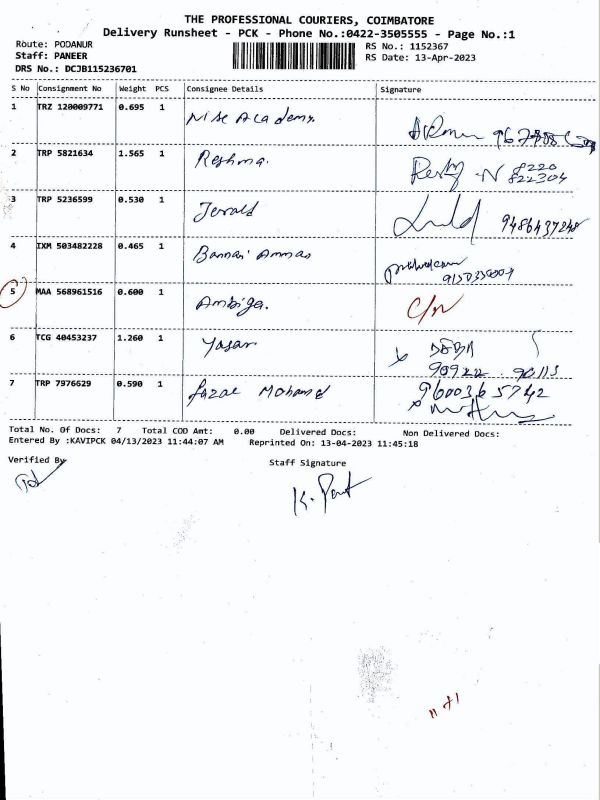 THE PROFESSIONAL COURIERS, COIMBATORE
Delivery Runsheet - PCK - Phone No.:0422-3505555 - Page No.:1
Route: PODANUR
Staff: PANEER
DRS No.: DCJB115236701
RS No.: 1152367
RS Date: 13-Apr-2023
S No Consignment No Weight PCS Consignee Details Signature
1 TRZ 120009771 0.695 1 Nise Academy.
2 TRP 5821634 1.565 1 Reshma. 8220
822304
3 TRP 5236599 0.530 1 Jerald 9486437248
4 IXM 503482228 0.465 1 Bannari Amman
5 MAA 568961516 0.600 1 Ambiga. C/N
6 TCG 40453237 1.260 1 Yasar
7 TRP 7976629 0.590 1 Fazal Mohamed 9600365742
Total No. Of Docs: 7 Total COD Amt: 0.00 Delivered Docs: Non Delivered Docs:
Entered By :KAVIPCK 04/13/2023 11:44:07 AM Reprinted On: 13-04-2023 11:45:18
Verified By Staff Signature